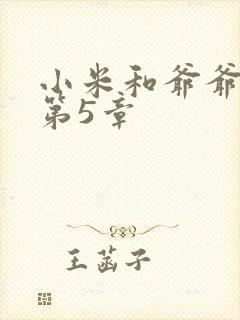 小米和爷爷
第5章
王菡子